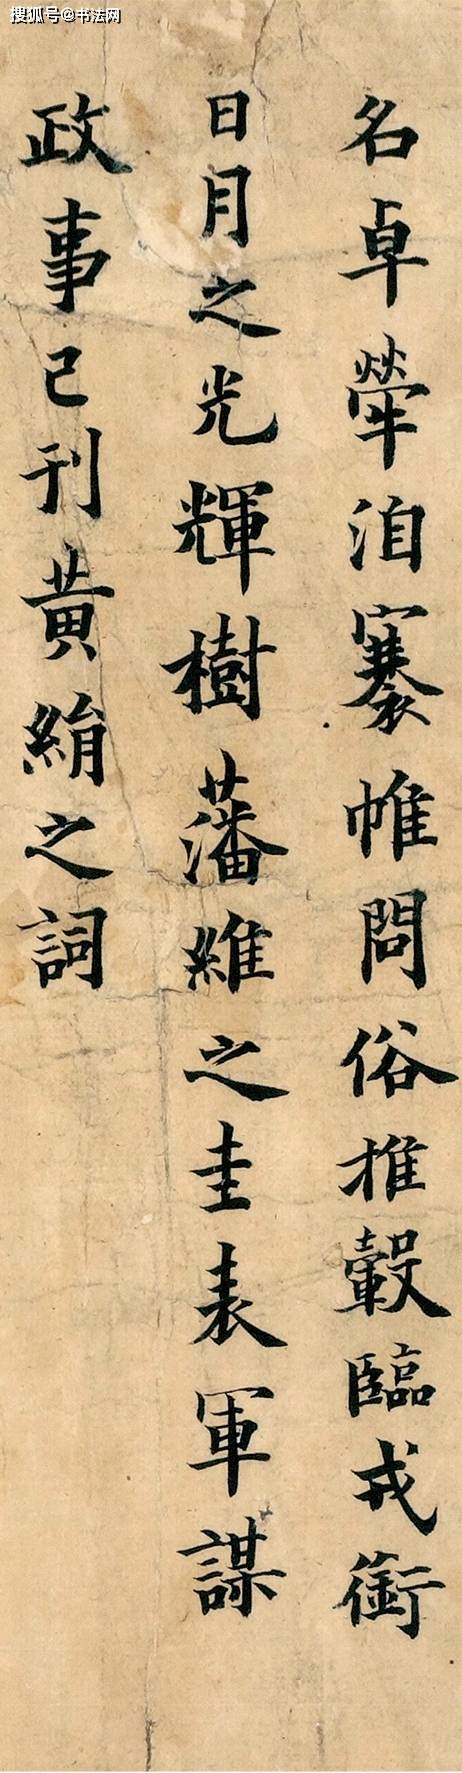 搜狐号@书法网
名卓犖洎褰帷問俗推轂臨戎銜
日月之光輝樹藩維之圭表軍謀
政事已刊黃絹之詞